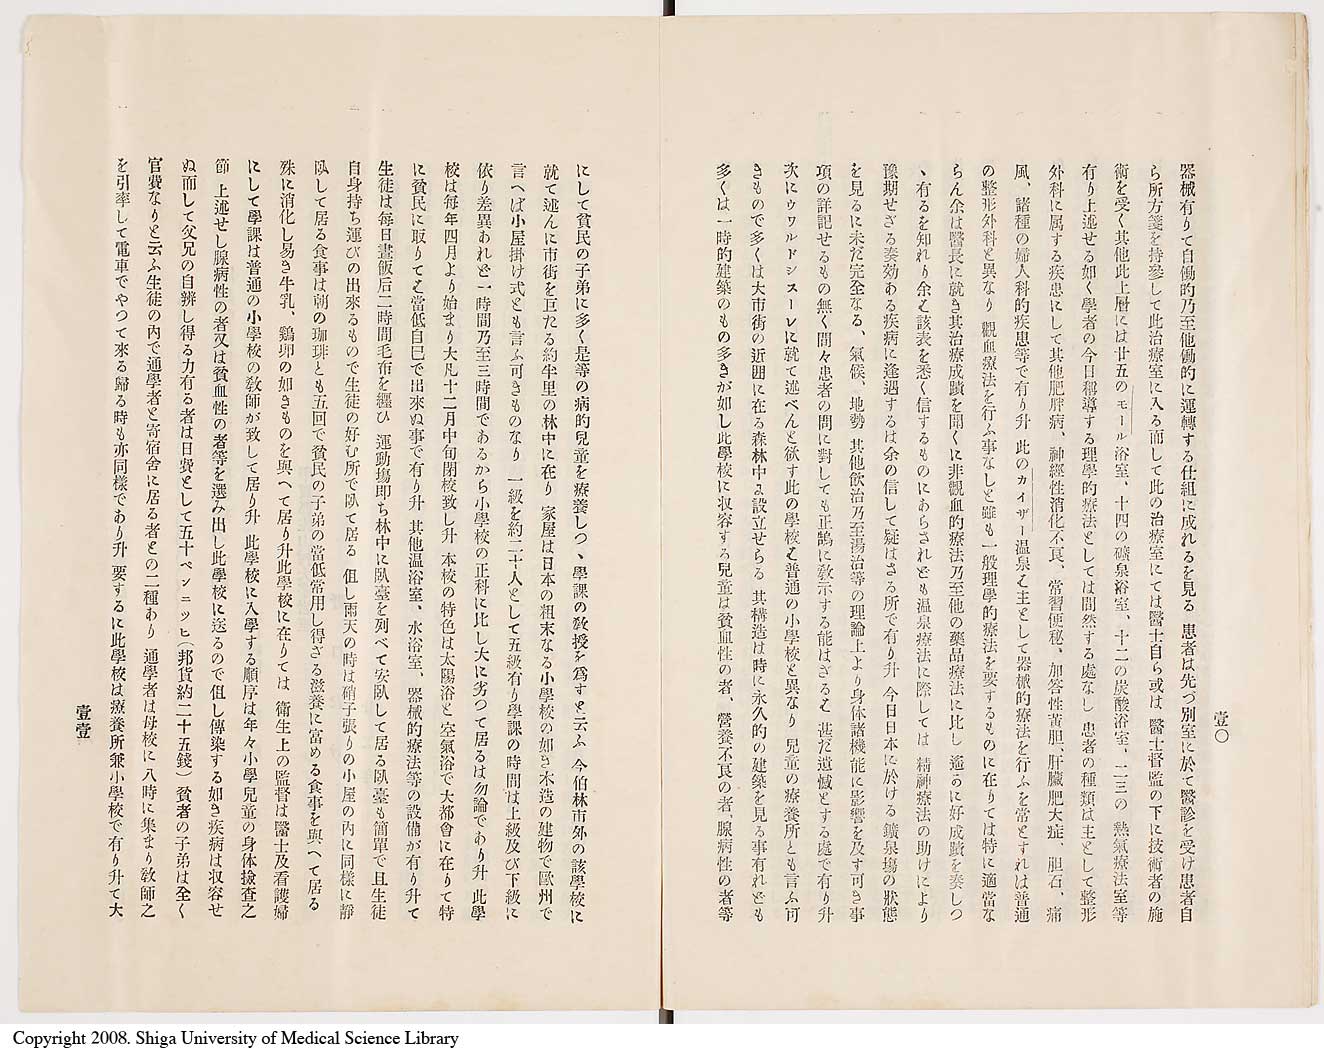 壹〇
器械有りて自働的乃至他働的に運轉する仕組に成れるを見る 患者は先づ別室に於て醫診を受け患者自
ら所方箋を持參して此治療室に入る而して此の治療室にては醫士自ら或は 醫士督監の下に技術者の施
術を受く其他此上層には廿五のモール浴室、十四の礦泉浴室、十二の炭酸浴室、二三の 熱氣療法室等
有り上述せる如く學者の今日稱導する理學的療法としては間然する處なし 患者の種類は主として整形
外科に属する疾患にして其他肥胖病、神經性消化不良、常習便秘、加答性黃胆、肝臟肥大症、胆石、痛
風、諸種の婦人科的疾患等で有り升 此のカイザー温泉は主として器械的療法を行ふを常とすれは普通
の整形外科と異なり 觀血療法を行ふ事なしと雖も一般理學的療法を要するものに在りては特に適當な
らん余は醫長に就き其治療成蹟を聞くに非觀血的療法乃至他の藥品療法に比し 遙るに好成蹟を奏しつ
ヽ有るを知れり余は該表を悉く信するものにあらされども温泉療法に際しては 精神療法の助けにより
豫期せざる奏効ある疾病に逢遇するは余の信して疑はさる所で有り升 今日日本に於ける 鑛泉塲の狀態
を見るに未だ完全なる、氣候、地勢 其他飲治乃至湯治等の理論上より身体諸機能に影響を及す可き事
項の詳記せるもの無く間々患者の問に對しても正鵠に敎示する能はざるは 甚だ遺憾とする處で有り升
次にウワルドシスーレに就て述べんと欲す此の學校は普通の小學校と異なり 兒童の療養所とも言ふ可
きもので多くは大市街の近囲に在る森林中に設立せらる 其構造は時に永久的の建築を見る事有れども
多くは一時的建築のもの多きが如し此學校に収容する兒童は貧血性の者、營養不良の者、腺病性の者等
にして貧民の子弟に多く是等の病的兒童を療養しつヽ學課の敎授を爲すと云ふ 今伯林市外の該學校に
就て述んに市街を距たる約半里の林中に在り 家屋は日本の粗末なる小學校の如き木造の建物で歐州で
言へば小屋掛け式とも言ふ可きものなり 一級を約二十人として五級有り學課の時間は上級及び下級に
依り差異あれど一時間乃至三時間であるから小學校の正科に比し大に劣つて居るは勿論であり升 此學
校は每年四月より始まり大凡十二月中旬閉校致し升 本校の特色は太陽浴と空氣浴で大都會に在りて特
に貧民に取りては當低自己で出來ぬ事で有り升 其他温浴室、水浴室、器械的療法等の設備が有り升て
生徒は每日晝飯后二時間毛布を纒ひ 運動塲即ち林中に臥臺を列べて安臥して居る臥臺も簡單で且生徒
自身持ち運びの出來るもので生徒の好む所で臥て居る 但し雨天の時は硝子張りの小屋の内に同樣に靜
臥して居る食事は朝の珈琲とも五回で貧民の子弟の當低常用し得ざる滋養に富める食事を與へて居る
殊に消化し易き牛乳、鷄卵の如きものを與へて居り升此學校に在りては 衛生上の監督は醫士及看護婦
にして學課は普通の小學校の敎師が致して居り升 此學校に入學する順序は年々小學兒童の身体撿查之
節 上述せし腺病性の者又は貧血性の者等を選み出し此學校に送るので但し傳染する如き疾病は収容せ
ぬ而して父兄の自辨し得る力有る者は日費として五十ペンニッヒ（邦貨約二十五錢）貧者の子弟は全く
官費なりと云ふ生徒の内で通學者と寄宿舍に居る者との二種あり 通學者は母校に八時に集まり敎師之
を引率して電車でやつて來る歸る時も亦同樣であり升 要するに此學校は療養所兼小學校で有り升て大
壹壹
Copyright 2008. Shiga University of Medical Science Library